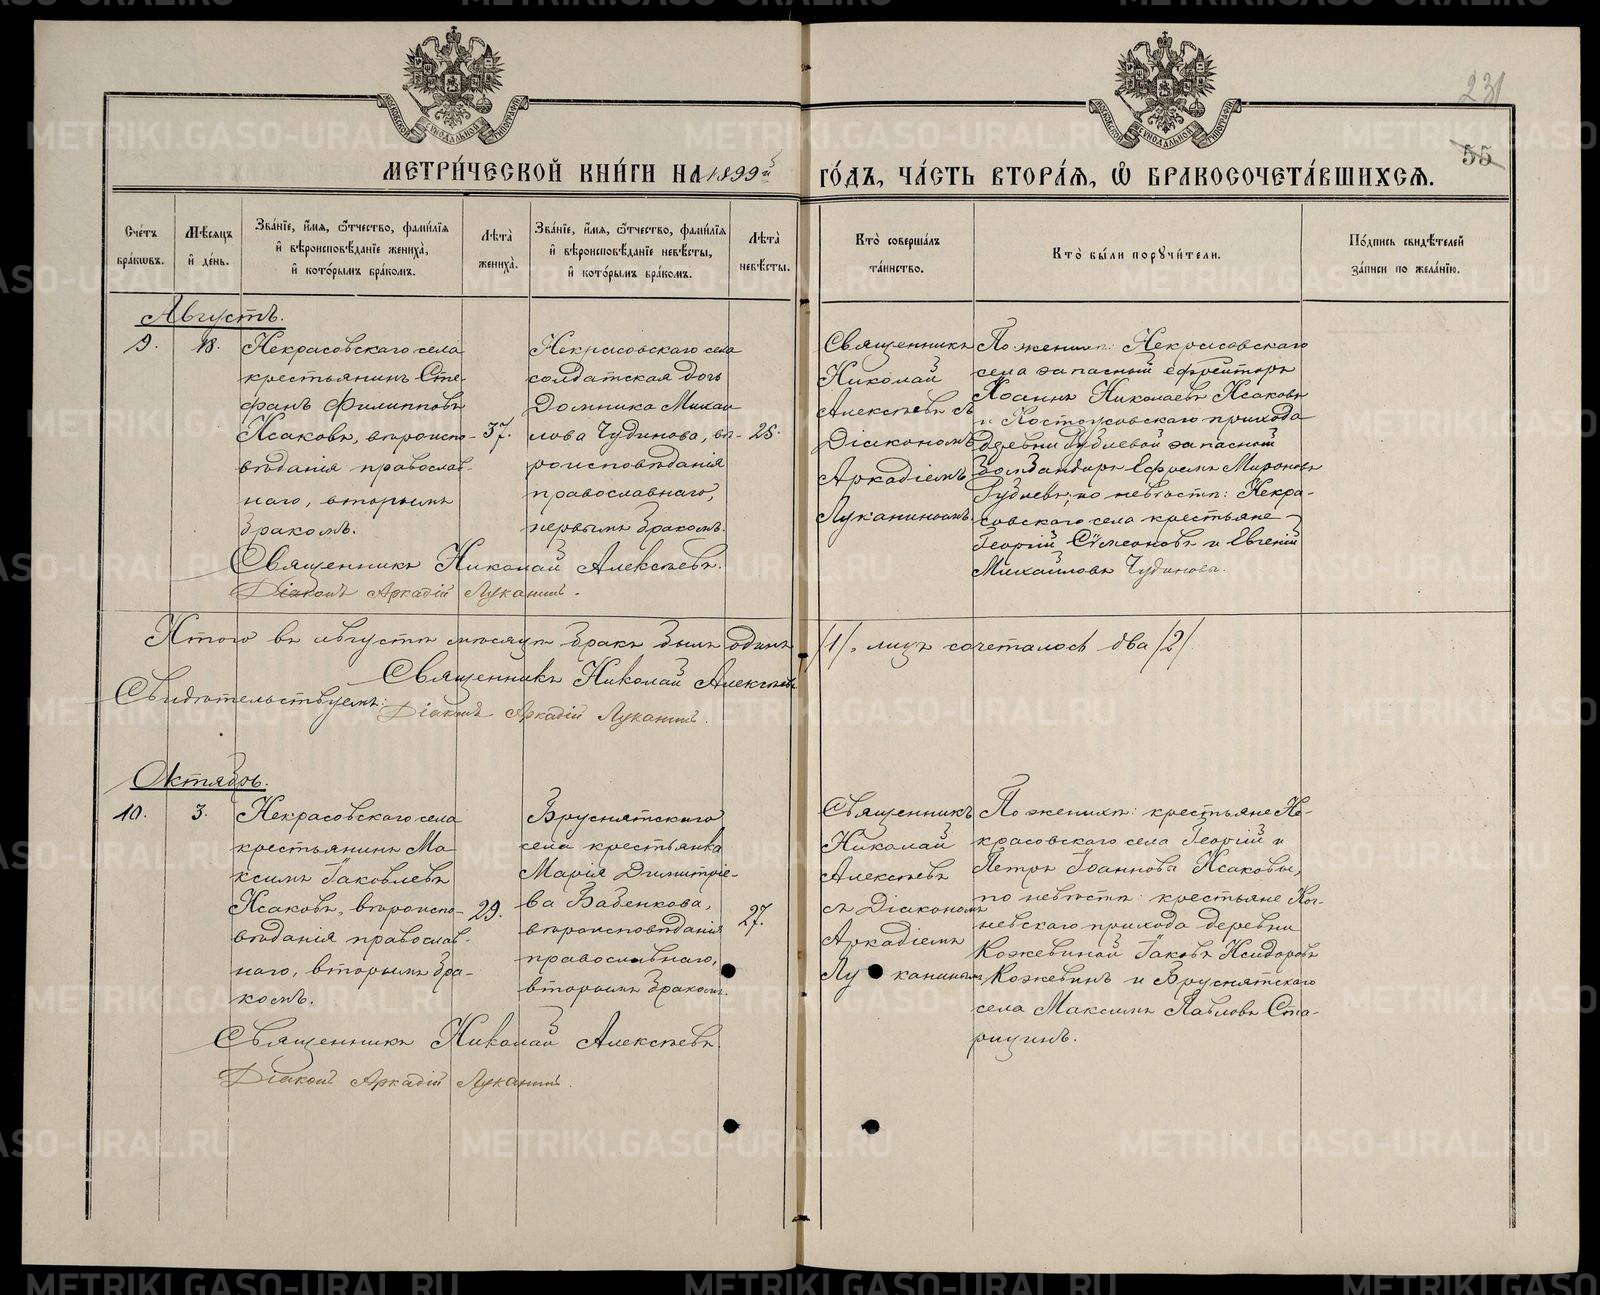 231
55
МЕТРИ́ЧЕСКОЙ КНИ́ГИ НА 1899й ГО́ДЪ, ЧА́СТЬ ВТОРА́Ѧ, Ѽ БРАКОСОЧЕТА́ВШИХСѦ.
Сче́тъ бра́кѡвъ.
Мѣ́сѧцъ и҆ де́нь.
Зва́нїе, и҆́мѧ, ѻ҆́тчество, фами́лїѧ и҆ вѣроисповѣ́данїе жениха̀, и҆ кото́рымъ бра́комъ.
Лѣ́та жениха̀.
Зва́нїе, и҆́мѧ, ѻ҆́тчество, фами́лїѧ и҆ вѣроисповѣ́данїе невѣ́сты, и҆ кото́рымъ бра́комъ.
Лѣ́та невѣ́сты.
Кто̀ соверша́лъ та́инство.
Кто̀ бы́ли порꙋчи́тели.
По́дпись свидѣ́телей за́писи по жела́нїю.
Августъ.
9.
18.
Некрасовскаго села
крестьянинъ Сте-
фанъ Филипповъ
Исаковъ, вѣроиспо-
вѣданія православ-
наго, вторымъ
бракомъ.
37.
Некрасовскаго села
солдатская дочь
Домника Михаи
лова Чудинова, вѣ-
роисповѣданія
православнаго,
первымъ бракомъ.
25.
Священникъ
Николай
Алексѣевъ съ
Діакономъ
Аркадіемъ
Луканинымъ
По женихѣ: Некрасовскаго
села запасный ефрейторъ
Іоаннъ Николаевъ Исаковъ
и прихода
деревни запасной
Ефремъ Мироновъ
по невѣстѣ: Некра-
совскаго села крестьяне
Георгій Сѵмеоновъ и Евгеній
Михаиловъ Чудиновы.
Священникъ Николай Алексѣевъ.
Діаконъ Аркадій Луканинъ.
Итого въ августѣ мѣсяцѣ бракъ былъ одинъ /1/, лицъ сочеталось два /2/.
Священникъ Николай Алексѣевъ
Свидѣтельствуемъ:
Діаконъ Аркадій Луканинъ.
Октябрь.
10.
3.
Некрасовскаго села
крестьянинъ Ма-
ксимъ Іаковлевъ
Исаковъ, вѣроиспо-
вѣданія православ-
наго, вторымъ бра-
комъ.
29.
Бруснятскаго
села крестьянка
Марія Димитріе-
ва Бабенкова,
вѣроисповѣданія
православнаго,
вторымъ бракомъ.
27.
Священникъ
Николай
Алексѣевъ
съ Діакономъ
Аркадіемъ
Луканинымъ
По женихѣ: крестьяне Не-
красовскаго села Георгій и
Петръ Іоанновы Исаковы,
по невѣстѣ: крестьяне
прихода деревни
Кожевиной Іаковъ Исидоровъ
Кожевинъ и Бруснятскаго
села Максимъ Павловъ Ста-
рицинъ.
Священникъ Николай Алексѣевъ.
Діаконъ Аркадій Луканинъ.
METRIKI.GASO-URAL.RU